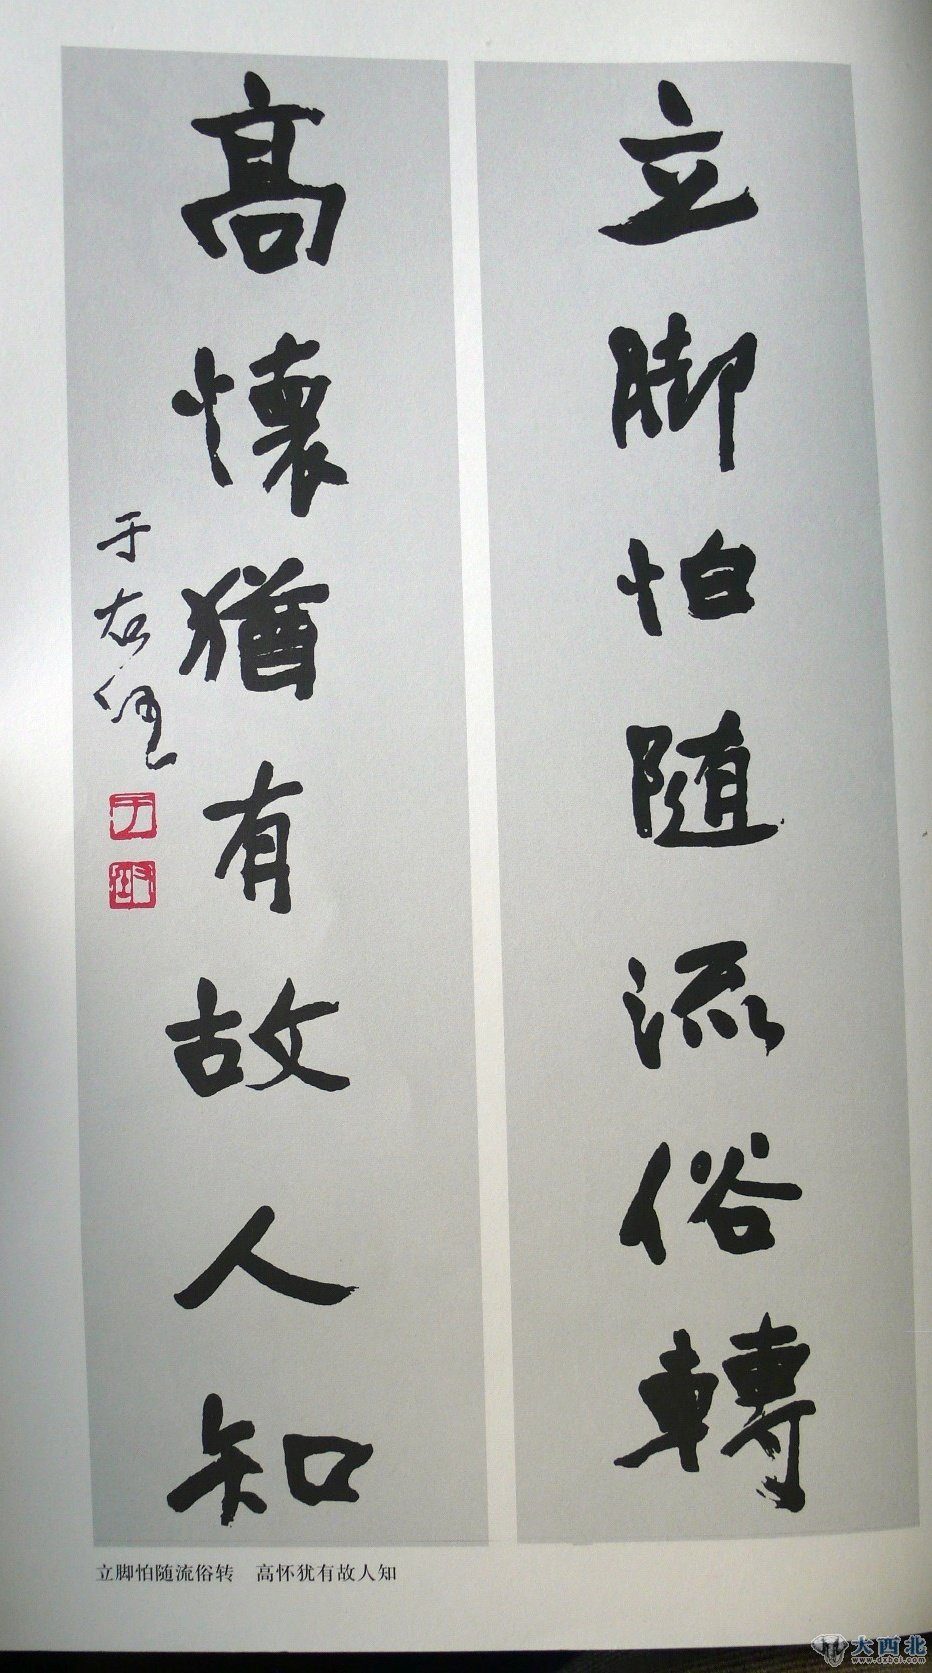 立脚怕随流俗轉
髙懷猶有故人知
于右任
立脚怕随流俗转　高怀犹有故人知
大西北
www.dxbei.com